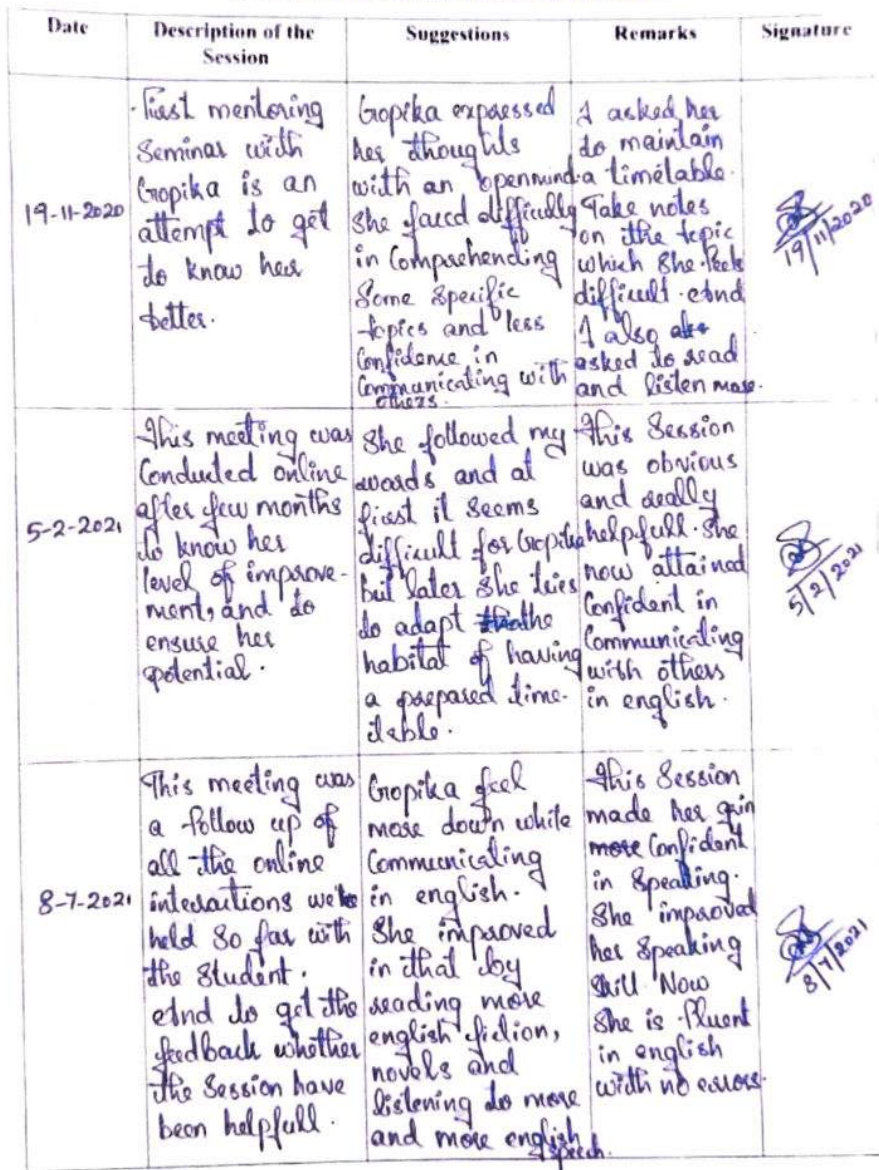 Date
Description of the
Session
Suggestions
Remarks
Signature
19-11-2020
First mentoring
Seminar with
Gopika is an
attempt to get
to know her
better.
Gopika expressed
her thoughts
with an openmind.
She faced difficulty
in Comprehending
Some Specific
topics and less
Confidence in
Communicating with
others.
I asked her
to maintain
a timetable.
Take notes
on the topic
which She feels
difficult. And
I also
asked to read
and listen more.
19/11/2020
5-2-2021
This meeting was
Conducted online
after few months
to know her
level of improve-
ment, and to
ensure her
potential.
She followed my
words and at
first it Seems
difficult for Gopika
but later She tries
to adapt the
habital of having
a prepared time-
table.
This Session
was obvious
and really
helpfull. She
now attained
Confident in
Communicating
with others
in english.
5/2/2021
8-7-2021
This meeting was
a follow up of
all the online
interactions we've
held So far with
the Student.
And to get the
feedback whether
the Session have
been helpfull.
Gopika feel
more down white
Communicating
in english.
She improved
in that by
reading more
english fiction,
novels and
listening to more
and more english
speech.
This Session
made her gain
more Confident
in Speaking.
She improved
her Speaking
Skill Now
She is fluent
in english
with no errors.
8/7/2021